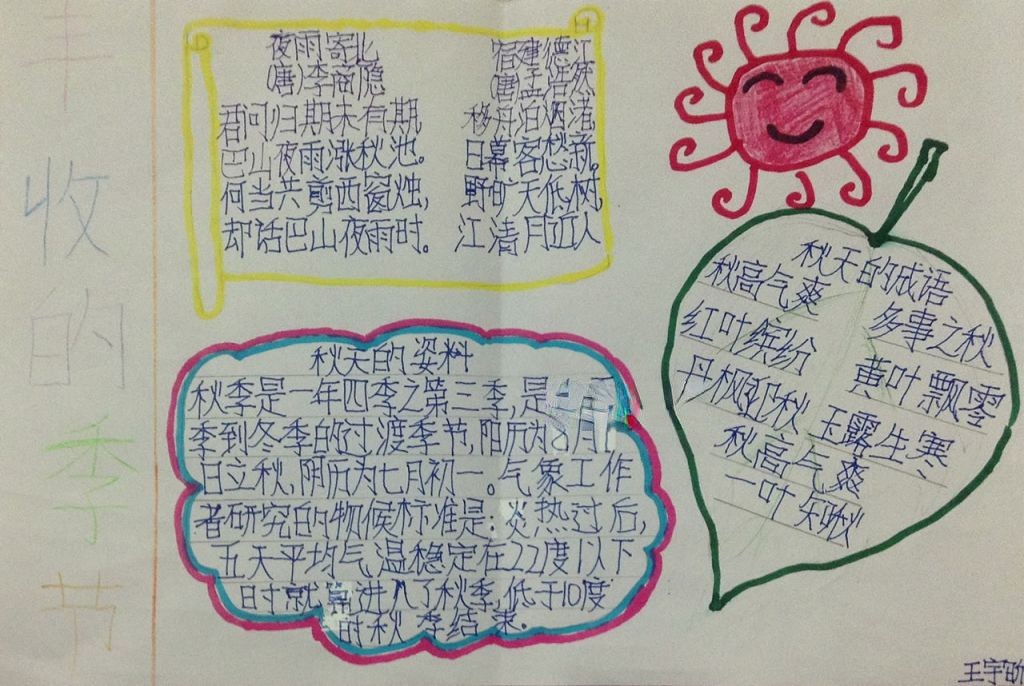 丰收的季节
夜雨寄北
(唐)李商隐
君问归期未有期
巴山夜雨涨秋池。
何当共剪西窗烛,
却话巴山夜雨时。
宿建德江
唐孟浩然
移舟泊烟渚
日暮客愁新。
野旷天低树,
江清月近人
秋天的成语
秋高气爽
多事之秋
红叶缤纷
黄叶飘零
丹枫迎秋
玉露生寒
秋高气爽
一叶知秋
秋天的姿料
秋季是一年四季之第三季,是
季到冬季的过渡季节,阳历为 月
日立秋,阴历为七月初一。气象工作
者研究的物候标准是:炎热过后,
五天平均气温稳定在22度以下
时就 进入了秋季,低于10度
时秋季结束。
王宇昕